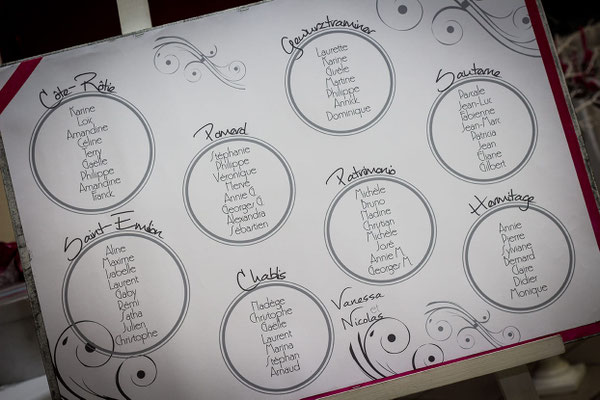 Côte-Rôtie
Karine
Loïc
Amandine
Céline
Terry
Gaëlle
Philippe
Amandine
Franck
Pomard
Stéphanie
Philippe
Véronique
Hervé
Annie G.
Georges G.
Alexandra
Sébastien
Gewurztraminer
Laurette
Karine
Gaële
Martine
Philippe
Annick
Dominique
Sauterne
Pascale
Jean-Luc
Fabienne
Jean-Marc
Patricia
Jean
Eliane
Gilbert
Saint-Emilion
Aline
Maxime
Isabelle
Laurent
Gaby
Rémi
Satha
Julien
Christophe
Chablis
Nadège
Christophe
Gaëlle
Laurent
Marina
Stéphan
Arnaud
Patrimonio
Michèle
Bruno
Nadine
Christian
Michèle
José
Annie M.
Georges M.
Hermitage
Annie
Pierre
Sylviane
Bernard
Claire
Didier
Monique
Vanessa
et
Nicolas